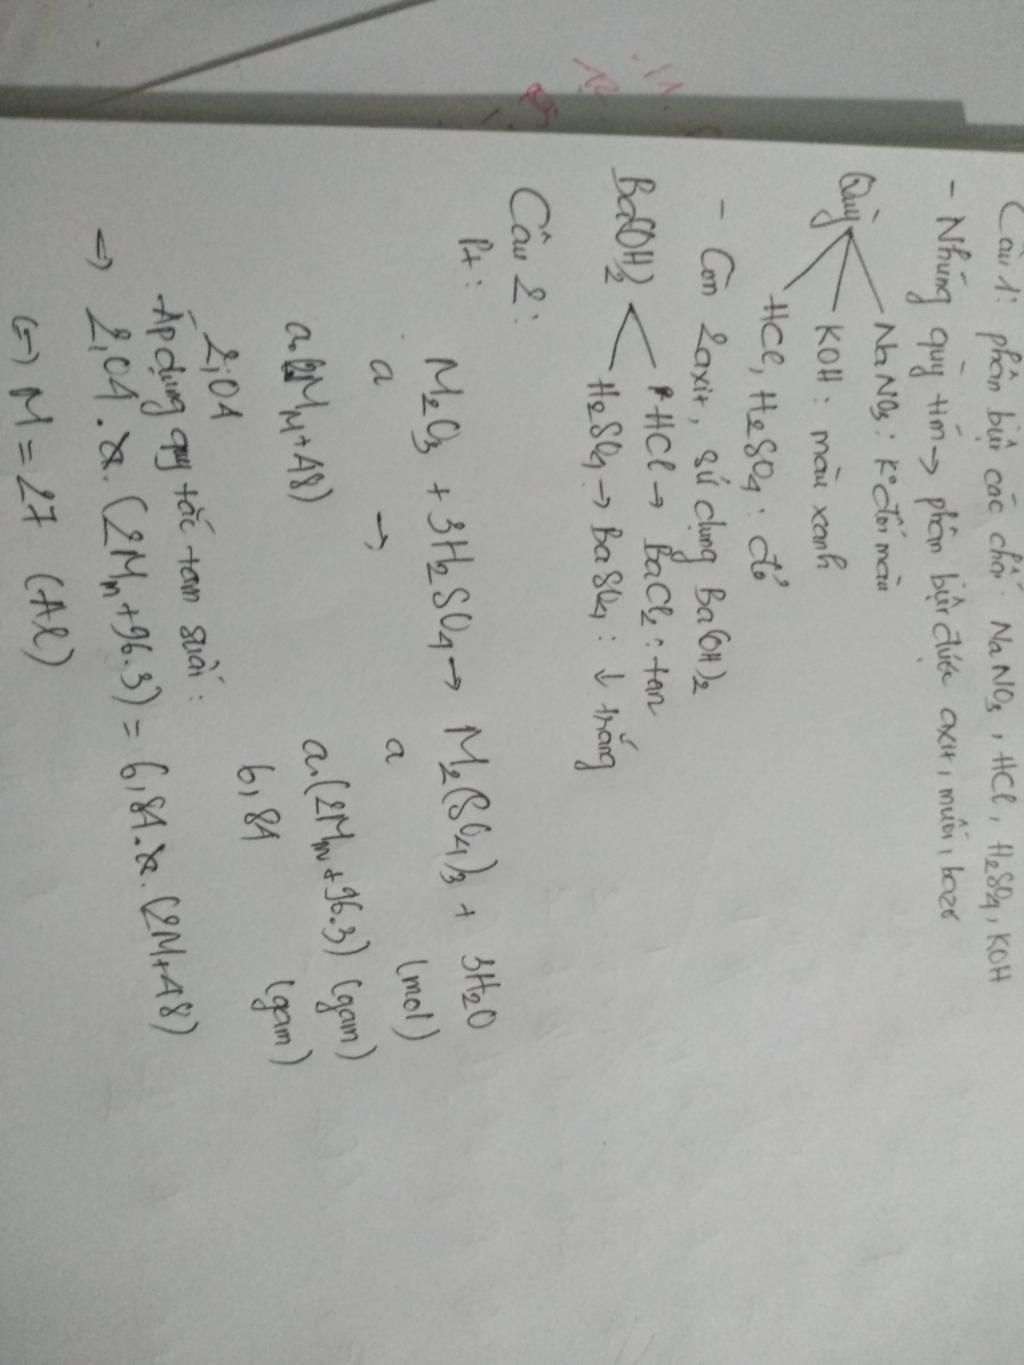 Câu 1: phân biệt các chất: NaNO3, HCl, H2SO4, KOH
- Nhúng quỳ tím → phân biệt được axit, muối, bazơ
Quỳ
NaNO3: K° đổi màu
KOH: màu xanh
HCl, H2SO4: đỏ
- Còn 2 axit, sử dụng Ba(OH)2
Ba(OH)2
HCl → BaCl2: tan
H2SO4 → BaSO4: ↓ trắng
Câu 2:
Pt: M2O3 + 3H2SO4 → M2(SO4)3 + 3H2O
a → a (mol)
a.(2MM+48) a.(2MM+96.3) (gam)
2,04 6,84 (gam)
Áp dụng quy tắc tam suất:
⇒ 2,04.a.(2MM+96.3) = 6,84.a.(2M+48)
⇔ M = 27 (Al)